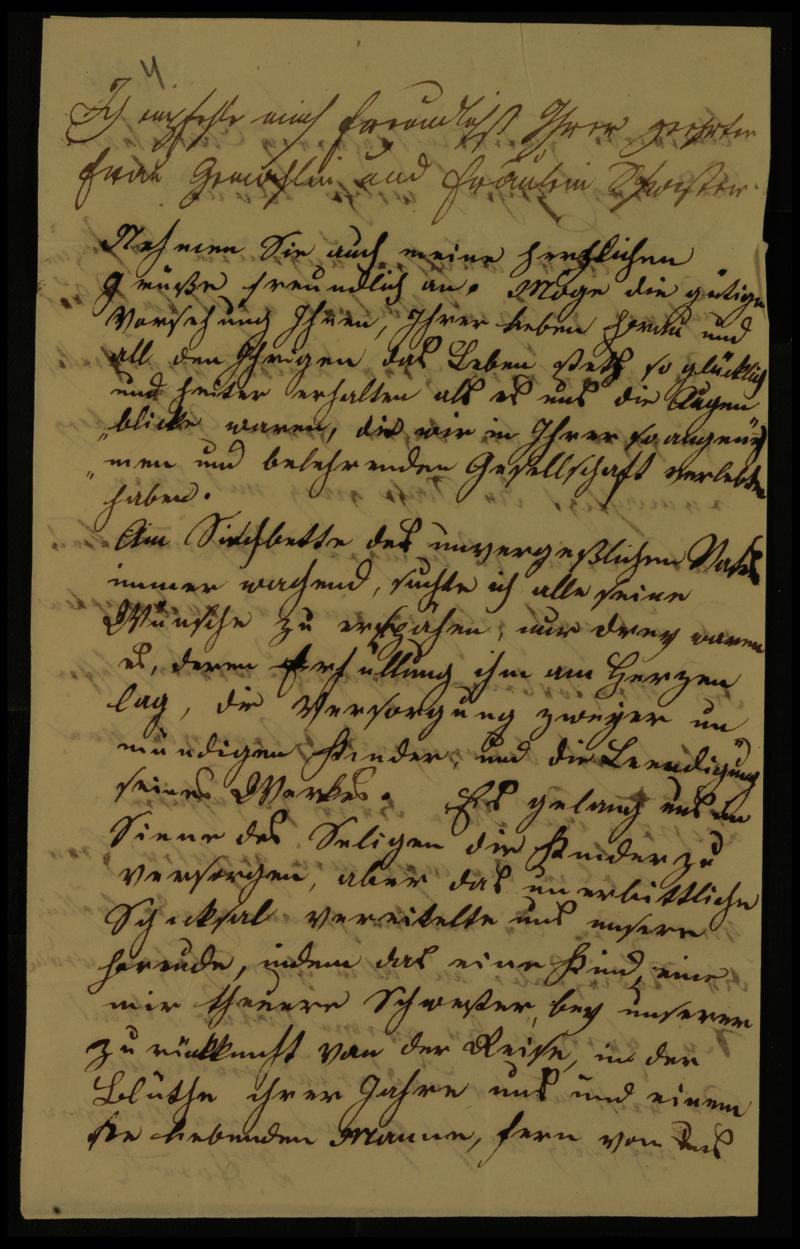 4
Ich empfehle mich freundlichst Ihrer geehrten
Frau Gemahlin und Fräulein Schwester.
Nehmen Sie auch meine herzlichen
Grüße freundlich an. Möge die gütige
Vorsehung Ihnen, Ihrer lieben und
all den Ihrigen das Leben stets so glücklich
und heiter erhalten als es uns die Augen
„blicke waren, die wir in Ihrer so angeneh
„men und belehrenden Gesellschaft verlebten
haben.
Am Siechbette des unvergeßlichen Vaters
immer wachend, suchte ich alle seine
Wünsche zu erspähen, nur drey waren
es, deren Erfüllung ihm am Herzen
lag, die Versorgung zweyer un
mündigen Kinder, und die Beendigung
seines Werkes. Es gelang uns im
Sinne des Seligen die Kinder zu
versorgen, aber das unerbittliche
Schicksal vereitelte uns unsere
Freude, indem das eine Kind, eine
mir theuere Schwester, bey unserer
Zurückkunft von der Reise, in der
Blüthe ihrer Jahre uns und einem
sie liebenden Manne, fern von uns